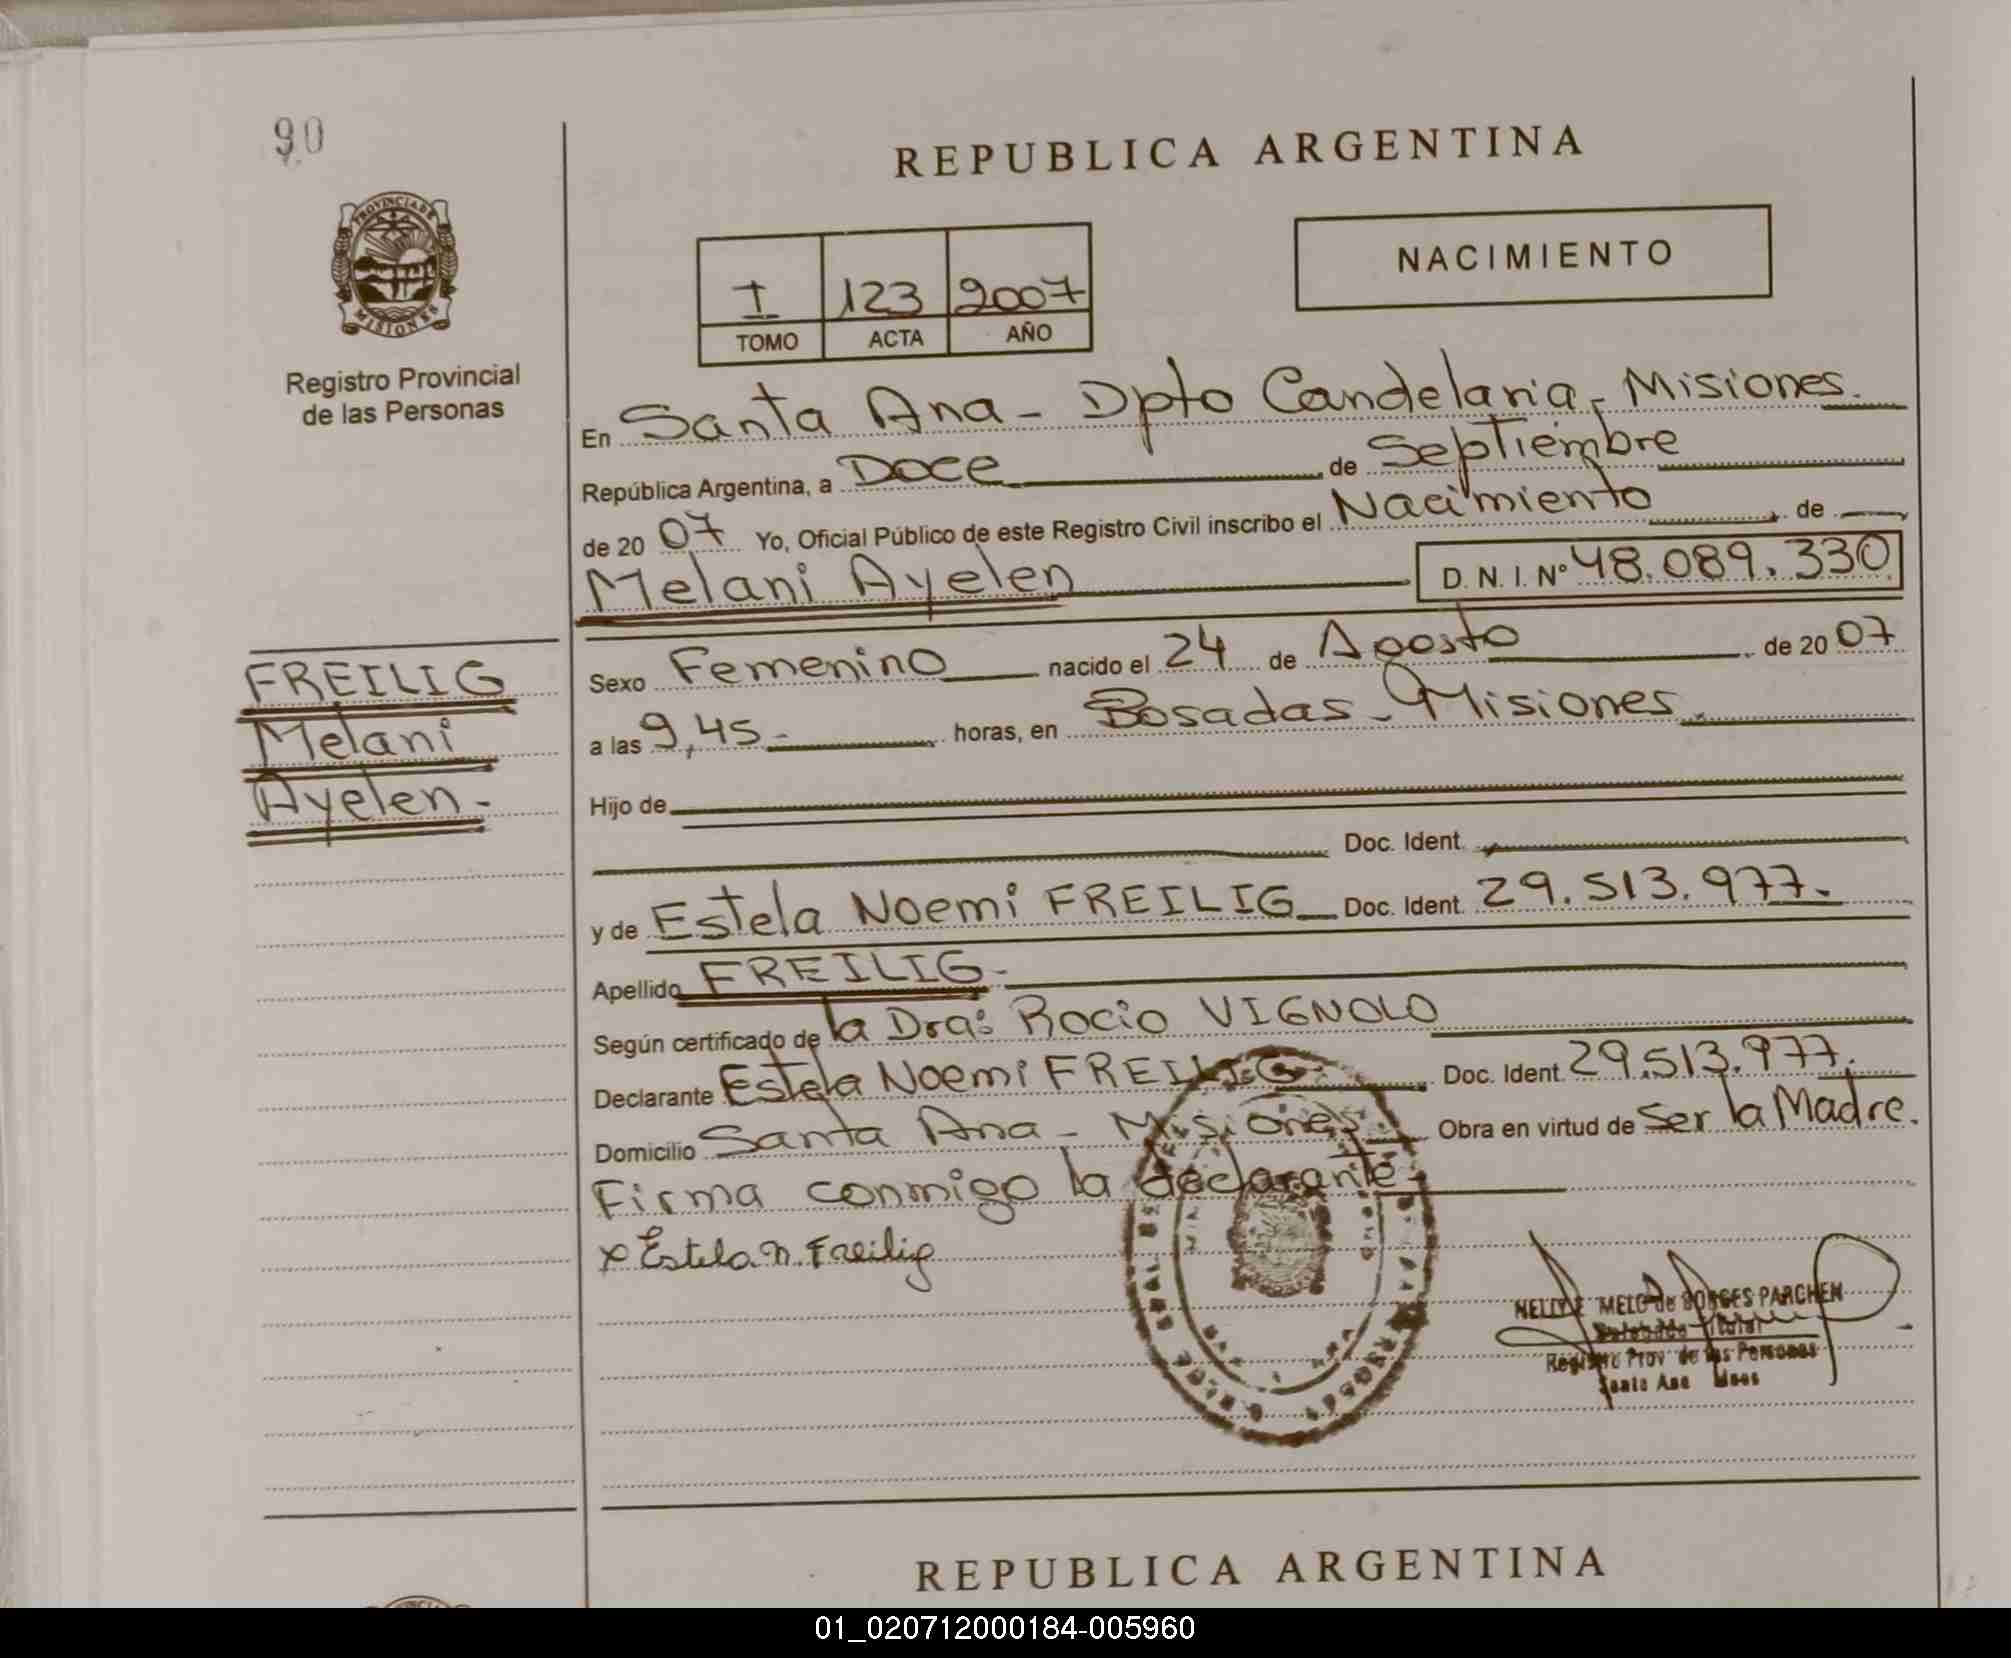 90
PROVINCIA DE
MISIONES
Registro Provincial
de las Personas
REPUBLICA ARGENTINA
I 123 2007
TOMO ACTA AÑO
NACIMIENTO
En Santa Ana - Dpto Candelaria - Misiones.
República Argentina, a Doce de Septiembre
de 20 07 Yo, Oficial Público de este Registro Civil inscribo el Nacimiento de
Melani Ayelen D. N. I. Nº 48.089.330
FREILIG
Melani
Ayelen-
Sexo Femenino nacido el 24 de Agosto de 20 07
a las 9,45- horas, en Posadas - Misiones.
Hijo de
Doc. Ident.
y de Estela Noemi FREILIG Doc. Ident. 29.513.977.
Apellido FREILIG-
Según certificado de la Dra: Rocio VIGNOLO
Declarante Estela Noemi FREILIG Doc. Ident. 29.513.977.
Domicilio Santa Ana - Misiones Obra en virtud de Ser la Madre.
Firma conmigo la declarante
x Estela N. Freilig
NELLY E. MELO de BORGES PARCHEM
Titular
Registro Prov de las Personas
Santa Ana Mnes
REPUBLICA ARGENTINA
01_020712000184-005960